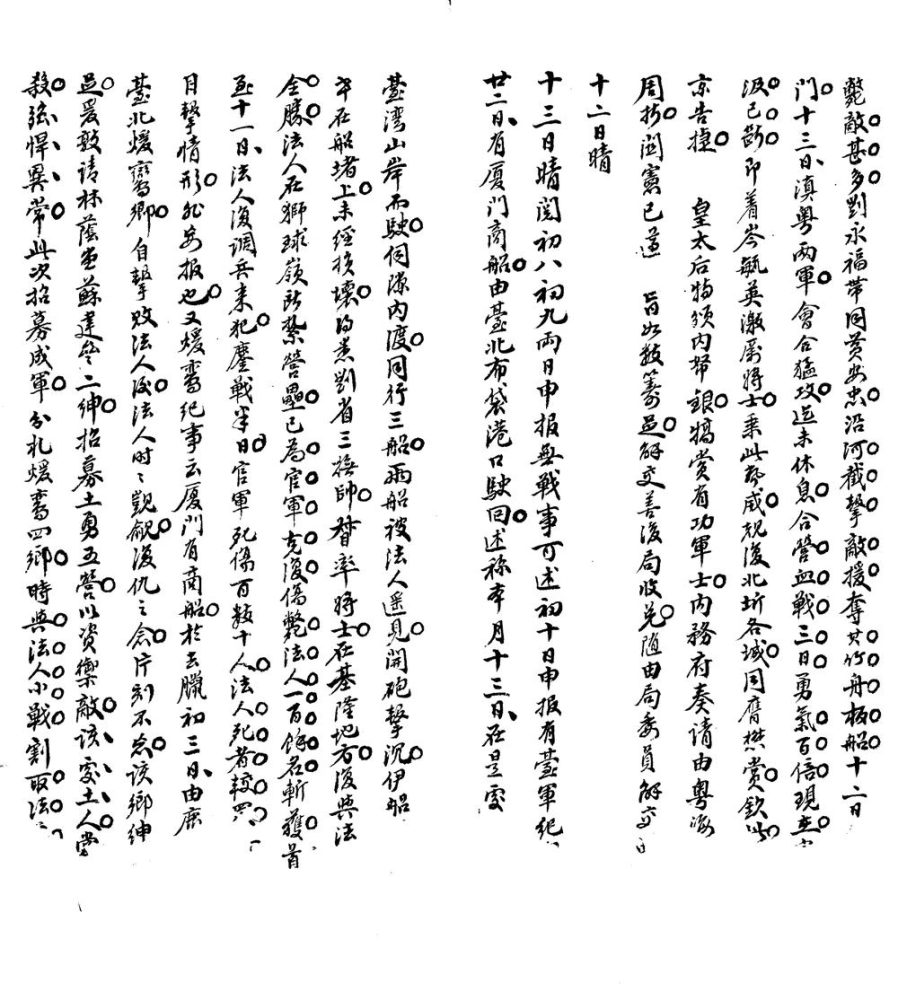 斃敵甚多劉永福帶同黃安忠沿河截擊敵援奪其竹舟板船十二日
門十三日滇粵兩軍會合猛攻迄未休息合營血戰三日勇氣百倍現在
汲已斷即着岑毓英激勵將士乘此聲威規復北圻各城同膺懋賞欽此
京告捷 皇太后特頒內帑銀犒賞有功軍士內務府奏請由粵海
周撥閻憲已遵 旨如數籌足解交善後局收兌隨由局委員解交
十二日晴
十三日晴閱初八初九兩日申報無戰事可述初十日申報有臺軍紀
廿二日有廈門商船由臺北布袋港口駛回述稱本月十三日在是處
臺灣山岸而駛伺隙內渡同行三船兩船被法人遥見開砲擊沉伊船
幸在船堵上未經損壞得悉劉省三撫帥督率將士在基隆地方復與法
全勝法人在獅球嶺所紮營壘已為官軍克復傷斃法人一百餘名斬獲首
至十一日法人復調兵來犯鏖戰半日官軍死傷百數十人法人死者較四
目擊情形非妄報也又煖鸞紀事云廈門有商船於去臘初三日由鹿
臺北煖鸞鄉自擊敗法人後法人時時覬覦復仇之念片刻不忘該鄉紳
是爰敦請林蔭堂蘇建參二紳招募土勇五營以資禦敵該處土人嘗
殺強悍異常此次招募成軍分札煖鸞四鄉時與法人小戰割取法